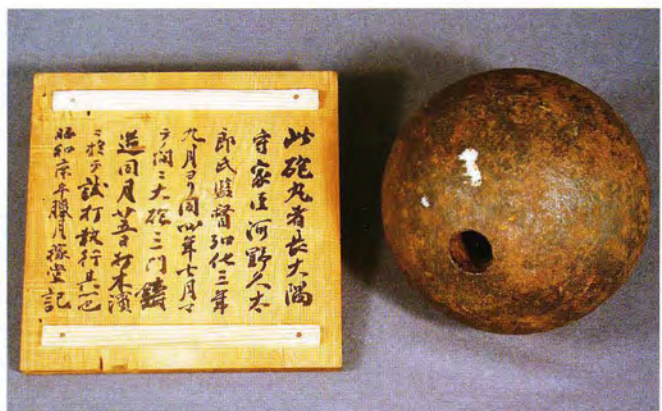 此砲丸者長大隅
守家臣河野久太
郎氏監督弘化三年
九月ヨリ同四年七月マ
テノ間ニ大砲三門鑄
造同月廿五日打木濱
ニ於テ試打執行其一也
昭和庚午臘月稼堂記